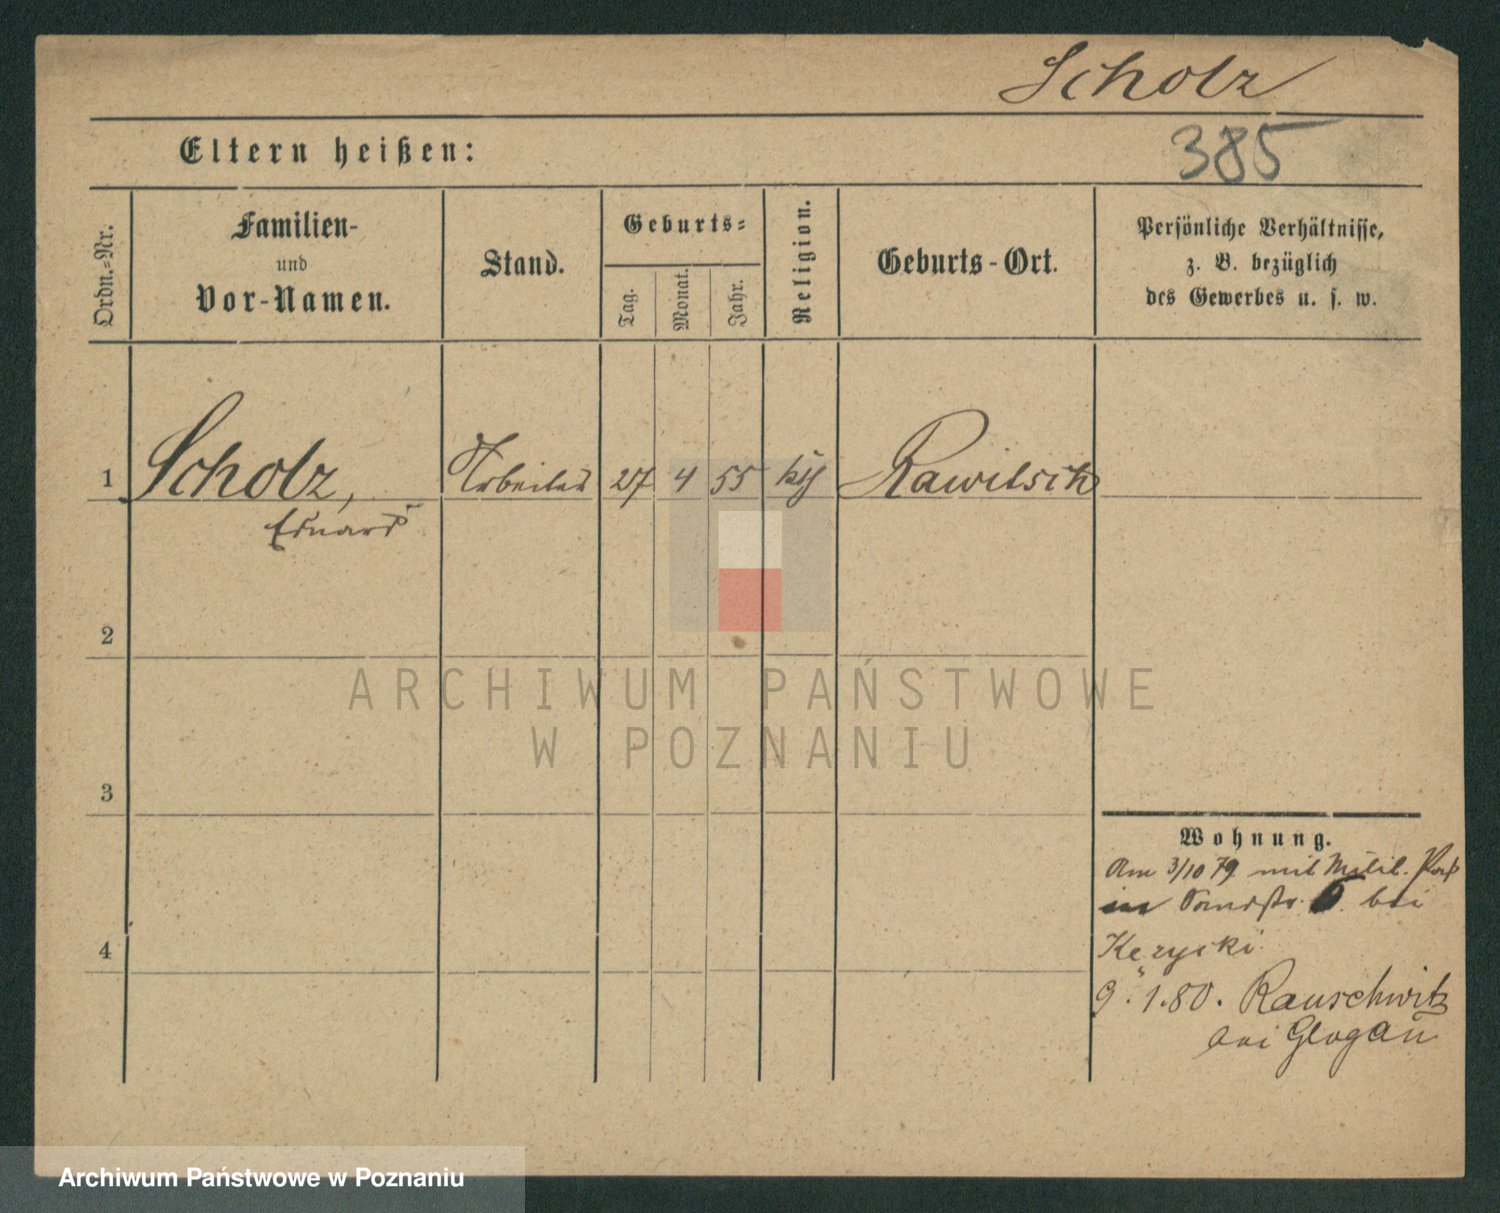 Scholz
385
Eltern heißen:
Ordn.-Nr.
Familien-
und
Vor-Namen.
Stand.
Geburts-
Tag.
Monat.
Jahr.
Religion.
Geburts-Ort.
Persönliche Verhältnisse,
z. B. bezüglich
des Gewerbes u. s. w.
1 Scholz, Arbeiter 27 4 55 kth Rawitsch
Eduard
2
3
4
Wohnung.
Am 3/10 79 mit Milit. Paß
in Sandstr. 6 bei
9. 1. 80. Rauschwitz
bei Glogau
ARCHIWUM PAŃSTWOWE
W POZNANIU
Archiwum Państwowe w Poznaniu